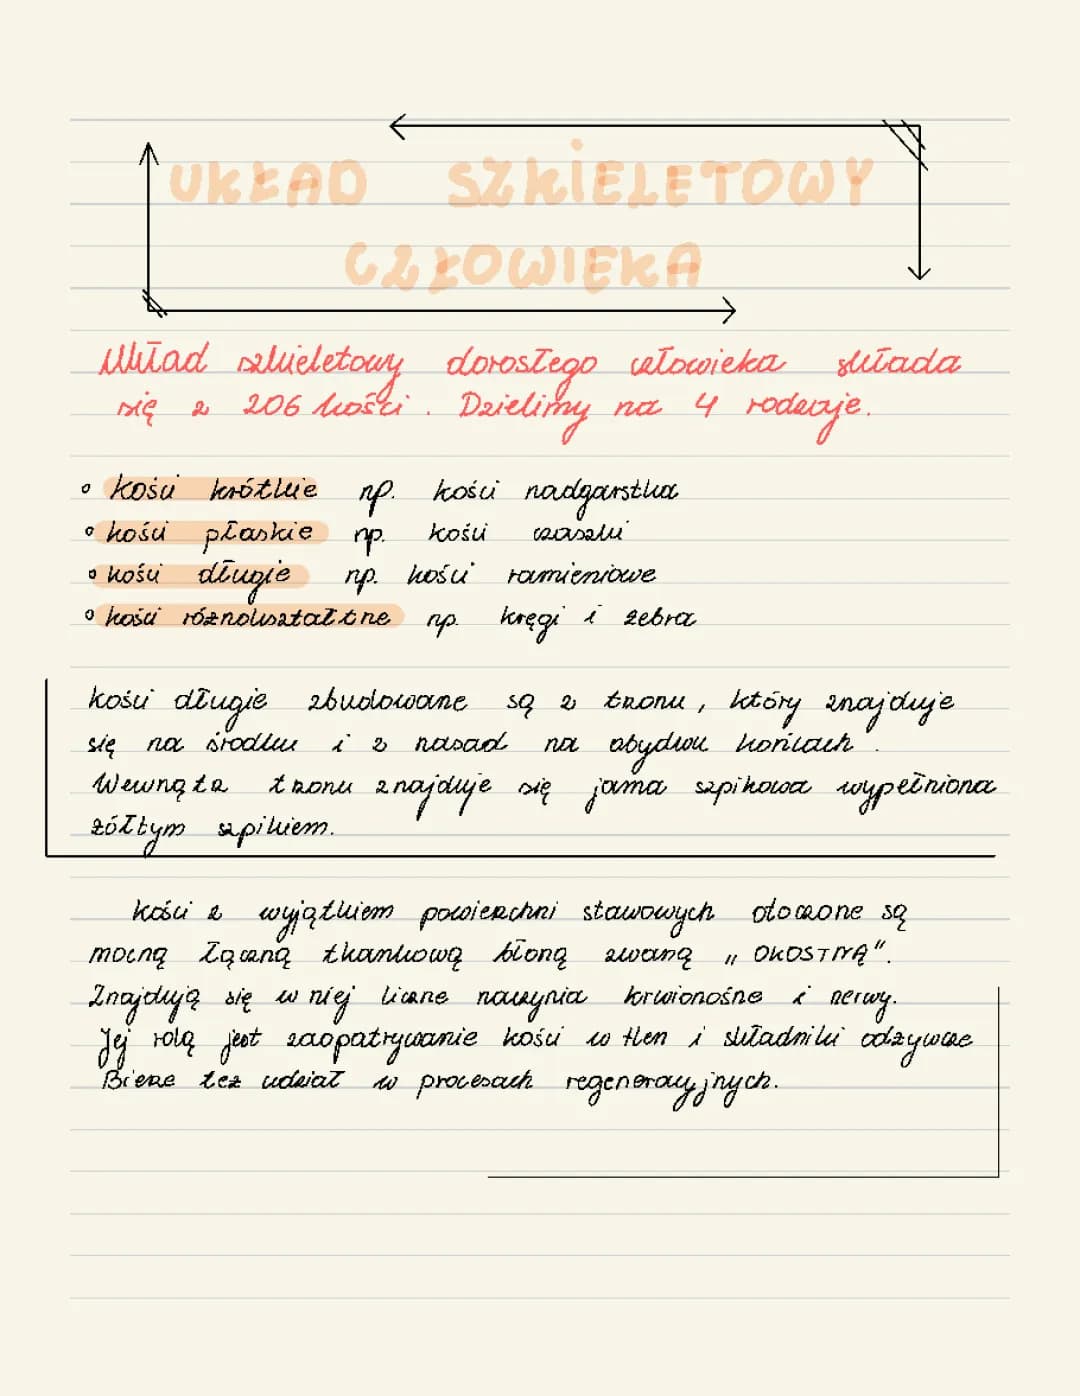 UKŁAD SZKIELETOWY
CZŁOWIEKA
Układ szkieletowy dorosłego człowieka składa
się z 206 kości. Dzielimy na 4 rodzaje.
◦ kości krótkie np. kości nadgarstka
◦ kości płaskie np. kości czaszki
◦ kości długie np. kości ramieniowe
◦ kości różnokształtne np. kręgi i żebra
Kości długie zbudowane są z trzonu, który znajduje
się na środku i z nasad na obydwu końcach.
Wewnątrz trzonu znajduje się jama szpikowa wypełniona
żółtym szpikiem.
Kości z wyjątkiem powierzchni stawowych otoczone są
mocną łączną tkankową błoną zwaną „OKOSTNĄ".
Znajdują się w niej liczne naczynia krwionośne i nerwy.
Jej rolą jest zaopatrywanie kości w tlen i składniki odżywcze
Bierze też udział w procesach regeneracyjnych.